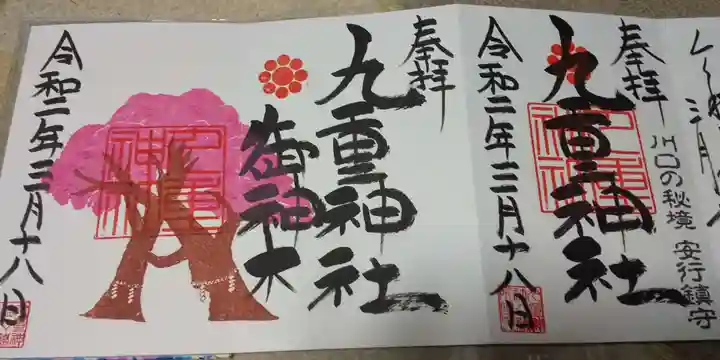 奉拝
九重神社
御神木
令和二年三月十八日
奉拝
九重神社
令和二年三月十八日
川口の秘境 安行鎮守